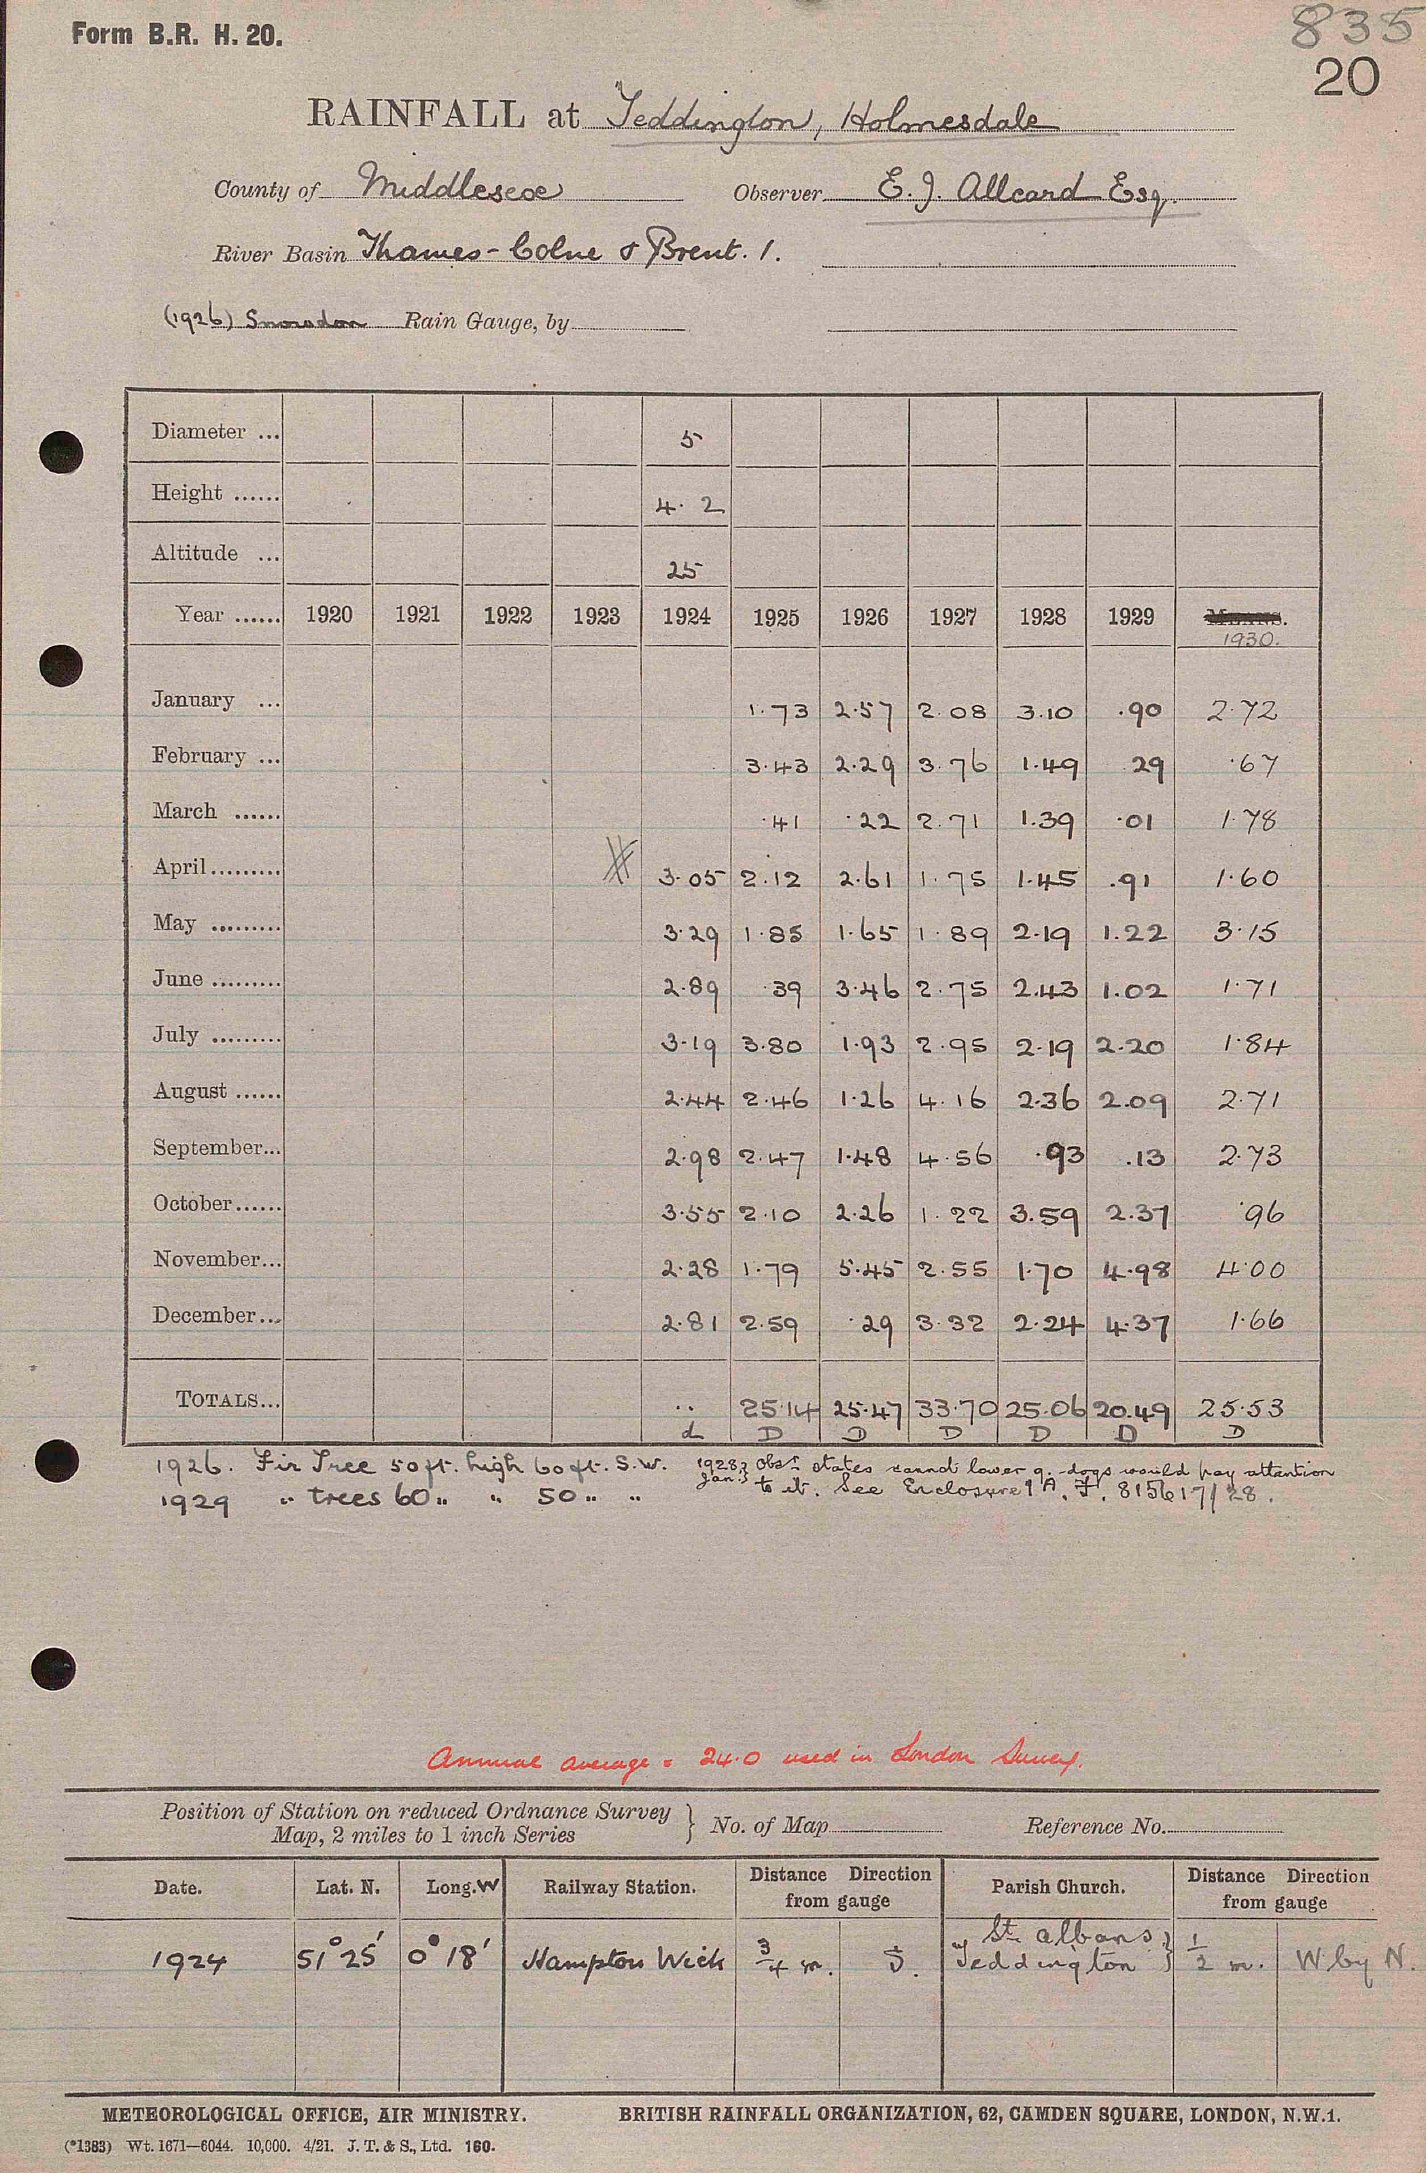 Form B.R. H. 20.
835
20
RAINFALL at Teddington, Holmesdale
County of Middlesex Observer E. J. Allcard Esq.
River Basin Thames - Colne & Brent. 1.
(1926) Snowdon Rain Gauge, by
Diameter ... 5
Height ...... 4. 2
Altitude ... 25
Year ...... 1920 1921 1922 1923 1924 1925 1926 1927 1928 1929 MEANS.
1930.
January ... 1.73 2.57 2.08 3.10 .90 2.72
February ... 3.43 2.29 3.76 1.49 29 .67
March ...... .41 .22 2.71 1.39 .01 1.78
April ......... 3.05 2.12 2.61 1.75 1.45 .91 1.60
May ......... 3.29 1.85 1.65 1.89 2.19 1.22 3.15
June ......... 2.89 .39 3.46 2.75 2.43 1.02 1.71
July ......... 3.19 3.80 1.93 2.95 2.19 2.20 1.84
August ...... 2.44 2.46 1.26 4.16 2.36 2.09 2.71
September... 2.98 2.47 1.48 4.56 .93 .13 2.73
October ...... 3.55 2.10 2.26 1.22 3.59 2.37 .96
November... 2.28 1.79 5.45 2.55 1.70 4.98 4.00
December... 2.81 2.59 .29 3.32 2.24 4.37 1.66
TOTALS... .. 25.14 25.47 33.70 25.06 20.49 25.53
d D D D D D D
1926. Fir Tree 50ft. high 60ft. S.W.
1929 " trees 60 " " 50 " "
1928 Jan. } obsr. states cannot lower g. - dogs would pay attention
to it. See Enclosure 1A. F. 815617/28.
Annual average = 24.0 used in London Survey.
Position of Station on reduced Ordnance Survey
Map, 2 miles to 1 inch Series } No. of Map Reference No.
Date. Lat. N. Long. W Railway Station. Distance Direction from gauge Parish Church. Distance Direction from gauge
1924 51° 25' 0° 18' Hampton Wick 3/4 m. S. St. Albans Teddington } 1/2 m. W by N.
METEOROLOGICAL OFFICE, AIR MINISTRY. BRITISH RAINFALL ORGANIZATION, 62, CAMDEN SQUARE, LONDON, N.W.1.
(*1383) Wt. 1671—6044. 10,000. 4/21. J. T. & S., Ltd. 160.